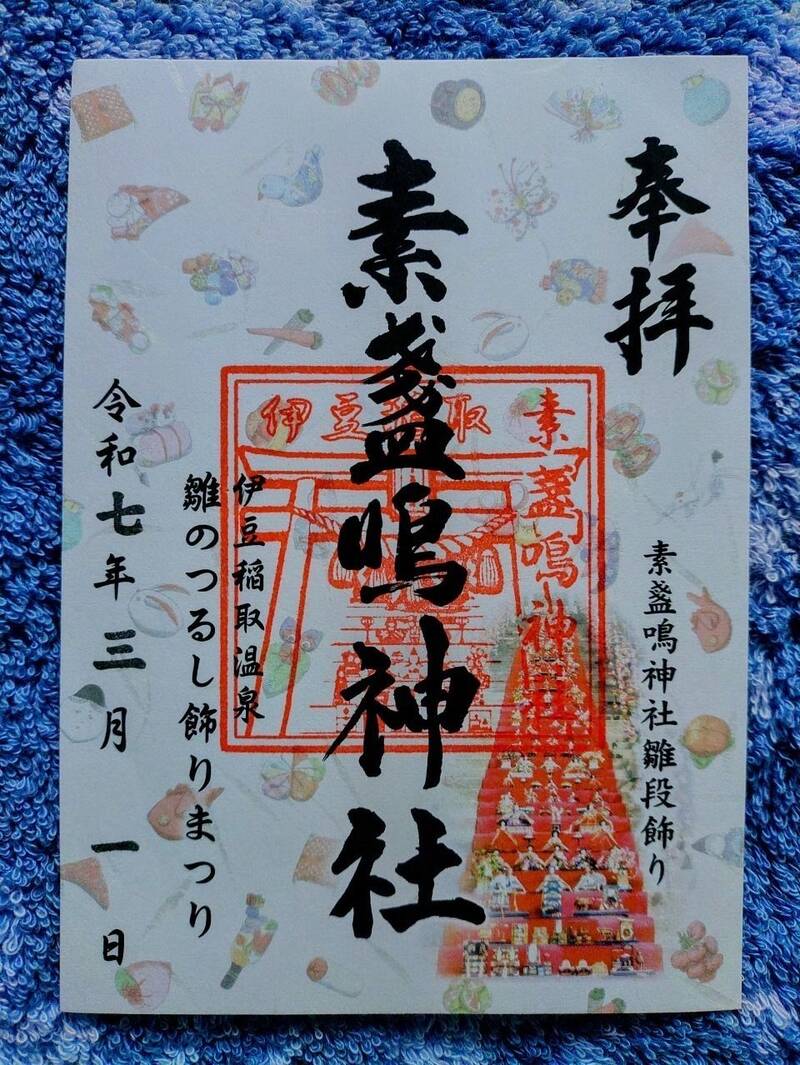 奉拝
素盞鳴神社雛段飾り
素盞鳴神社
素盞鳴神社
伊豆稲取
伊豆稲取温泉
雛のつるし飾りまつり
令和七年三月一日